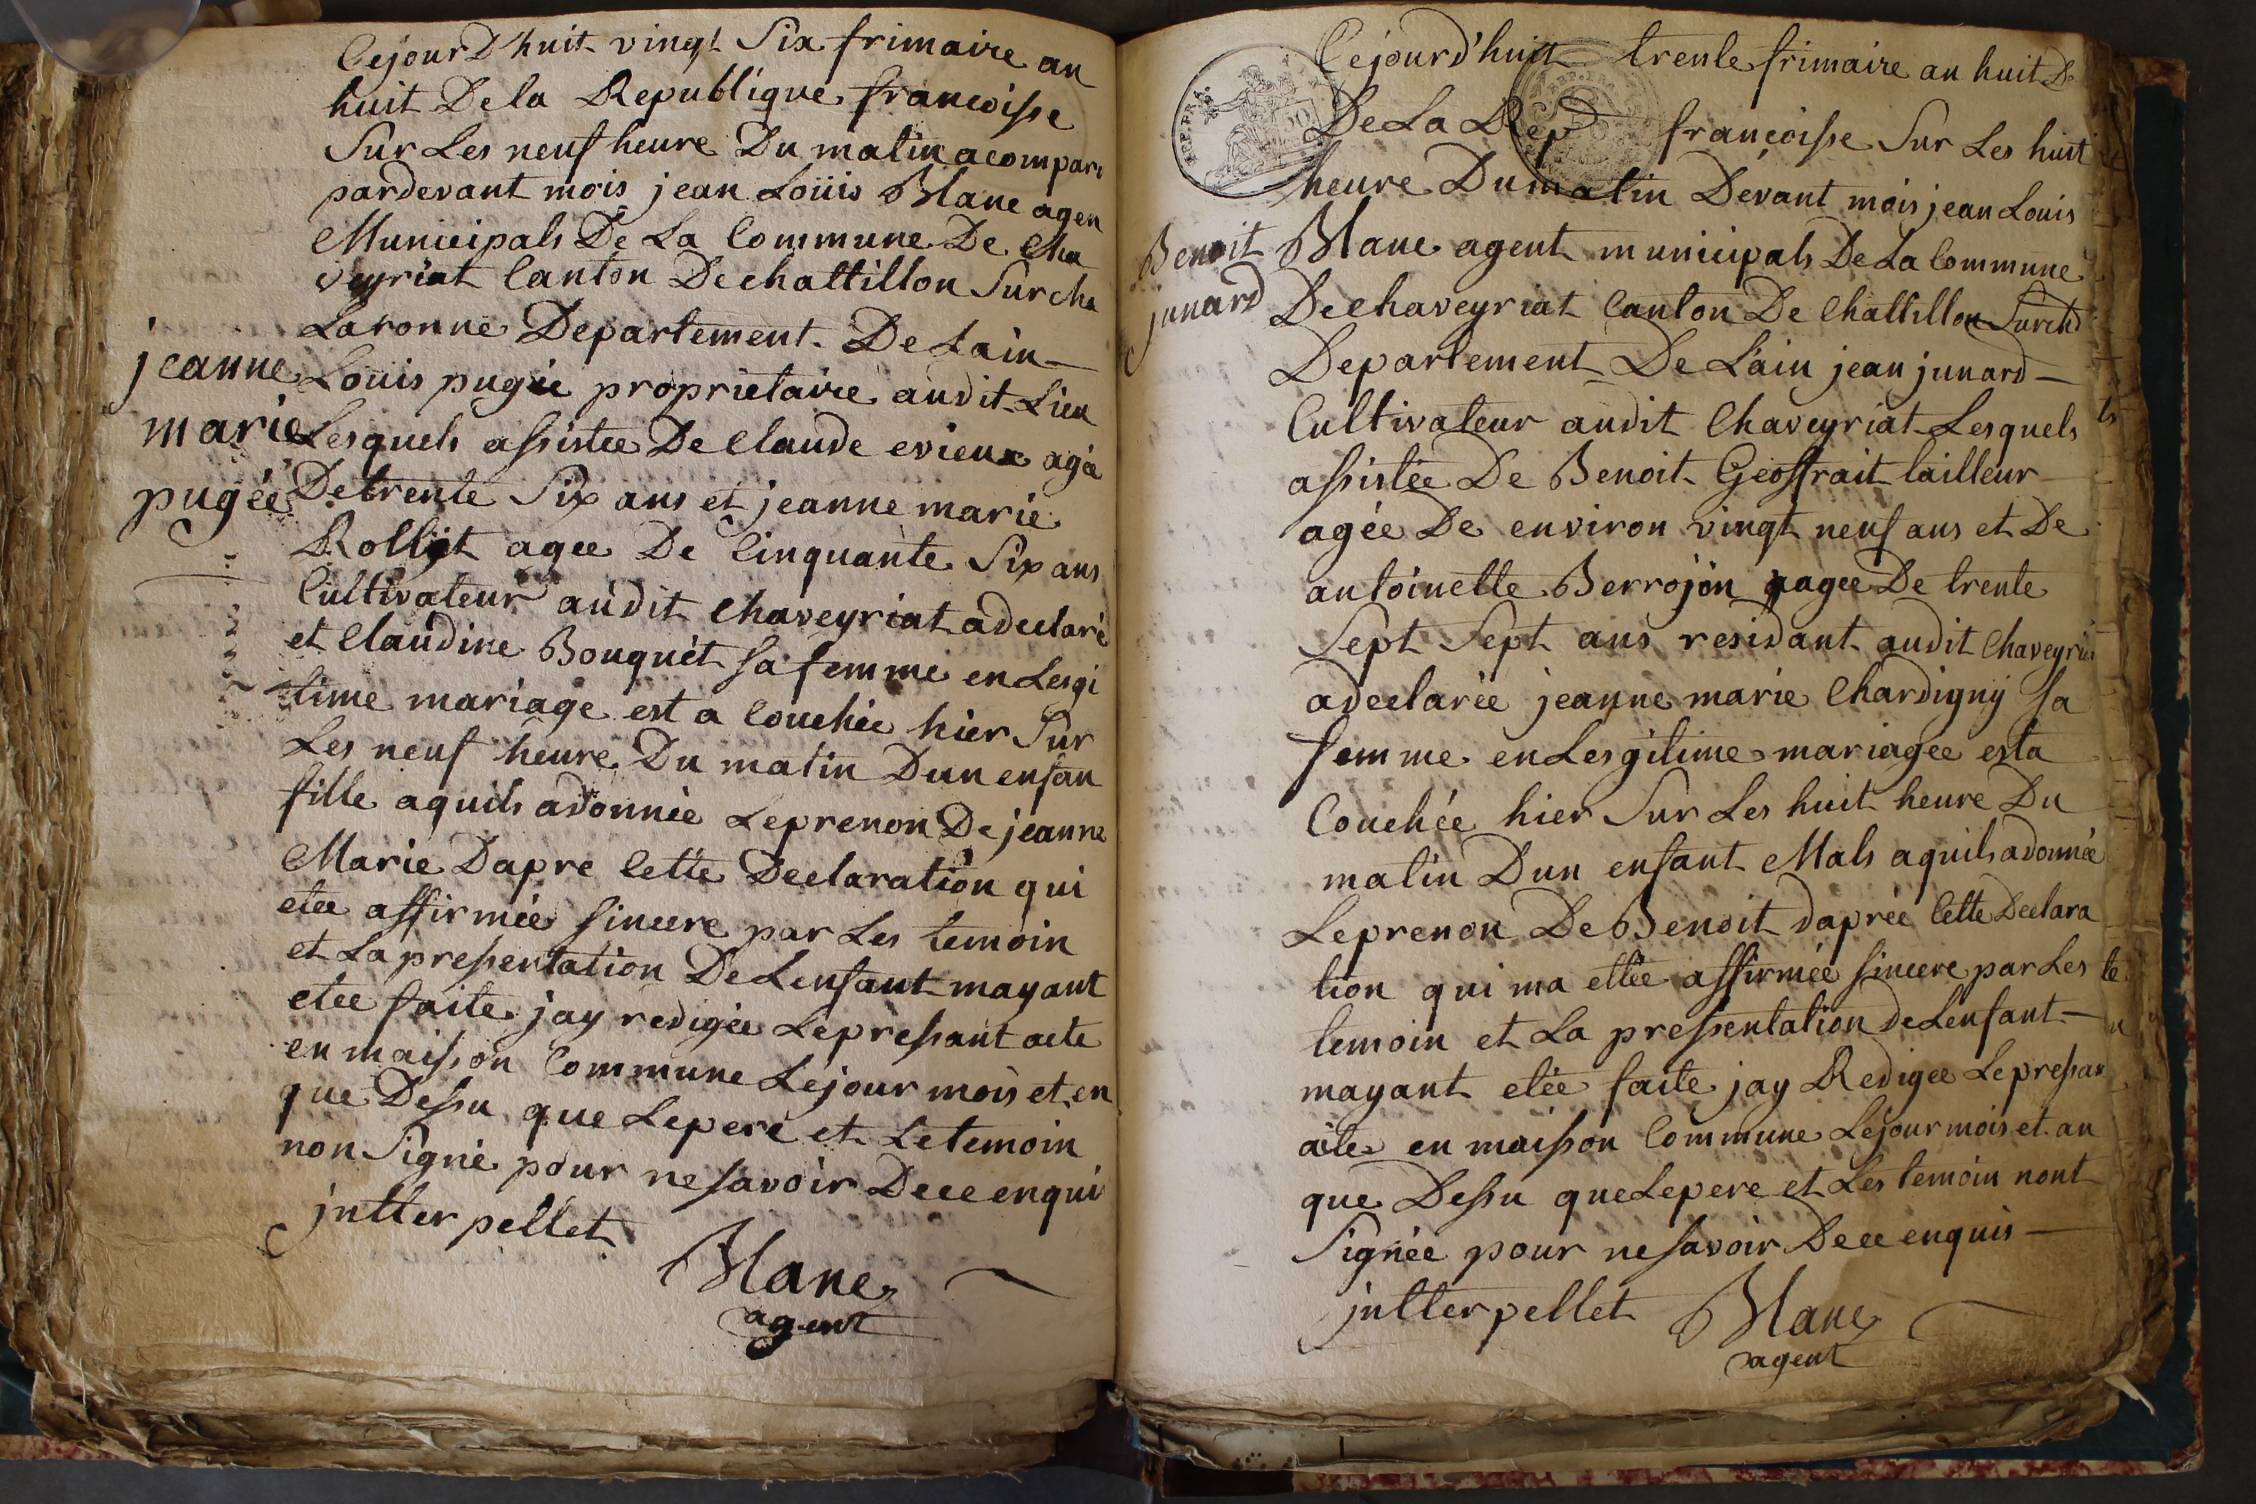 Cejourd'huit vingt Six frimaire an
huit De la Republique francoisse
Sur Les neuf heure Du matin a compari
pardevant mois jean Louis Blanc agen
Municipals De La Commune De Cha
veyriat Canton De chattillon Sur cha
Laronne Departement De Lain
Louis pugée proprietaire audit Lieu
Lesquels assistee De Claude evieux agée
De trente Six ans et jeanne marie
Rollet agee De Cinquante Six ans
Cultivateur audit Chaveyriat adeclaré
et Claudine Bouquet sa femme en Lesgi
time mariage est a Couchée hier Sur
Les neuf heure Du matin Dun enfan
fille aquils adonnée Leprenon De jeanne
Marie Dapre Cette Declaration qui
etee affirmée sincere par Les temoin
et La pressentation De Lenfant mayant
etee faite jay redigée Lepressant acte
en maisson Commune Lejour mois et en
que Dessu que Lepere et Letemoin
non Signé pour ne savoir Dece enqui
jntterpellet
Blanc
agent
jeanne
marie
pugée
Cejourd'huit trente frimaire an huit De
De La Rep francoisse Sur Les huit
heure Dumatin Devant mois jean Louis
Blanc agent municipals De La Commune
De Chaveyriat Canton De Chattillon Surch
Departement De L'ain jean junard
Cultivateur audit Chaveyriat Lesquels
assistée De Benoit Geoffrait tailleur
agée De environ vingt neuf ans et De
antoinette Berrojon agee De trente
Sept Sept ans residant audit Chaveyria
adeclarée jeanne marie Chardigny sa
femme en Lesgitime mariagee esta
Couchée hier Sur Les huit heure Du
matin Dun enfant Mals aquils adonnée
Leprenon De Benoit daprée Cette Declara
tion qui ma ettée affirmée sincere par Les te
temoin et La pressentation de Lenfant
mayant etée faite jay Redigee Lepressan
acte en maisson Commune Lejour mois et an
que Dessu que Lepere et Les temoin nont
Signée pour ne savoir Dece enquis
jntterpellet
Blanc
agent
Benoit
junard